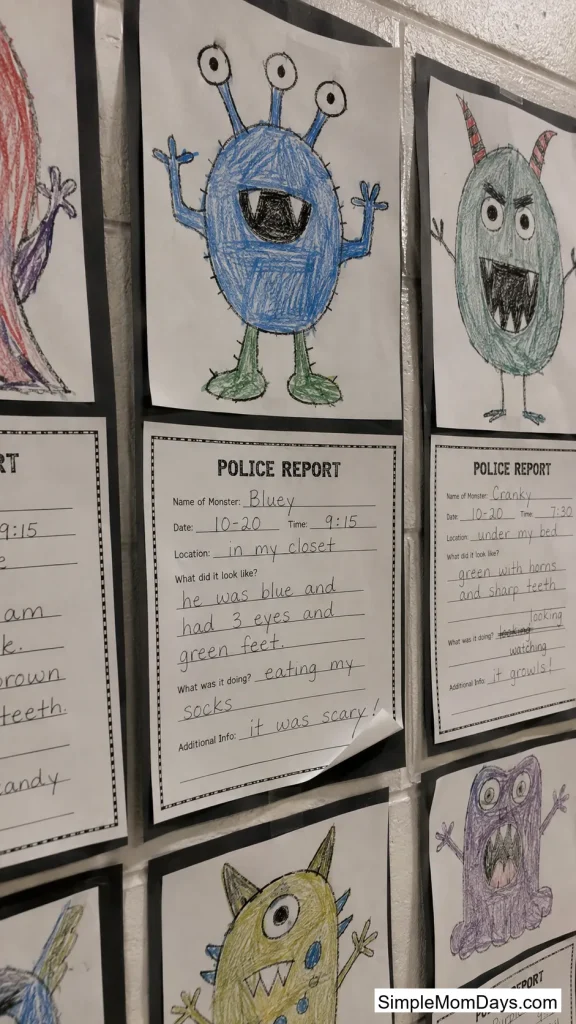 RT
9:15
am
k.
brown
teeth.
candy
POLICE REPORT
Name of Monster: Bluey
Date: 10-20 Time: 9:15
Location: in my closet
What did it look like?
he was blue and
had 3 eyes and
green feet.
What was it doing? eating my
socks
Additional Info: it was scary!
POLICE REPORT
Name of Monster: Cranky
Date: 10-20 Time: 7:30
Location: under my bed
What did it look like?
green with horns
and sharp teeth
looking
What was it doing? looking
watching
Additional Info: it growls!
SimpleMomDays.com